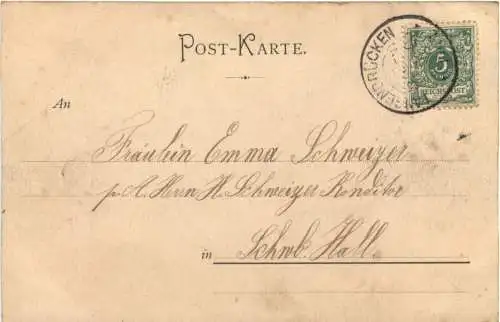 POST-KARTE.
5
REICHSPOST
An
Fräulein Emma Schweizer
p. A. Herrn H. Schweizer Konditor
in Schwb. Hall.